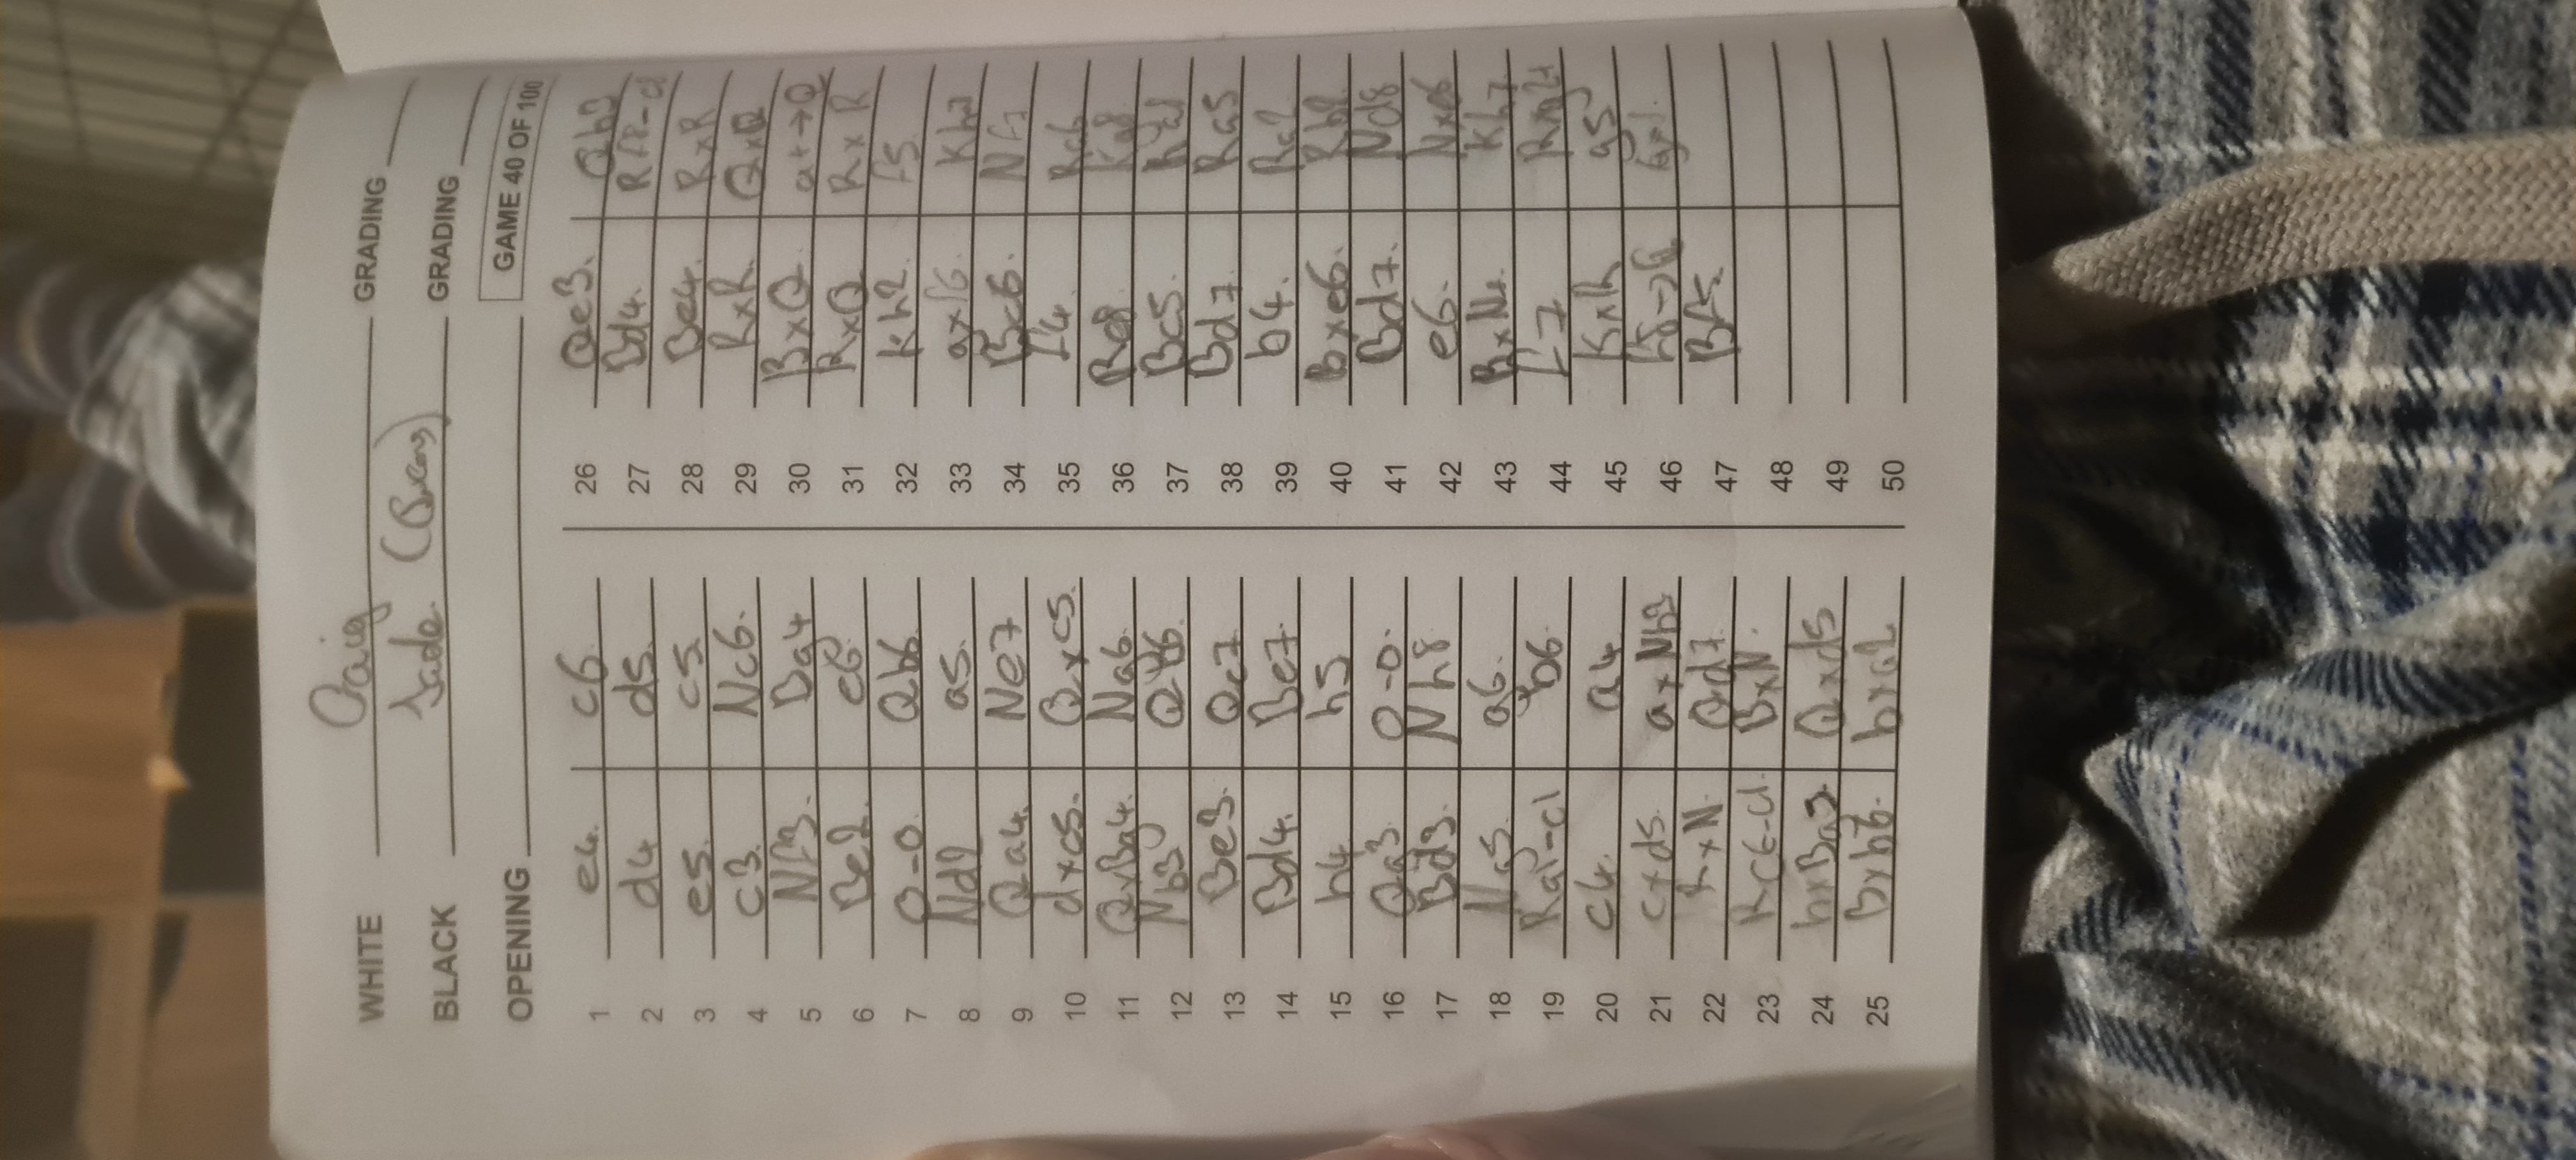 WHITE Craig GRADING
BLACK Jade GRADING
OPENING
GAME 40 OF 100
1 e4. c6.
2 d4 d5.
3 e5. c5.
4 c3. Nc6.
5 Nf3. Bg4
6 Be2. e6.
7 0-0. Qb6
8 Nd2 a5.
9 Qa4. Ne7
10 dxc5. Qxc5.
11 QxBg4. Ng6.
12 Nb3 Qb6.
13 Be3. Qc7
14 Bd4. Be7.
15 h4 h5
16 Qg3. 0-0.
17 Bd3. Nh8
18 Ng5. g6.
19 Ra1-c1 b6.
20 c4. a4
21 cxd5. axNb3
22 RxN. Qd7.
23 Rc6-c1. BxN.
24 hxBg5 Qxd5
25 Bxb6. bxa2
26 Qe3. Qb3
27 Bd4. Rf8-c8
28 Be4. RxR
29 RxR. QxQ
30 BxQ. a1→Q
31 RxQ RxR
32 Kh2. f5.
33 gxf6. Kh7
34 Bc6. Nf7
35 f4. Ra6
36 Be8. Kg8
37 Bc5.
38 Bd7. Ra5
39 b4. Ra2
40 Bxe6. Rb2
41 Bd7. Nd8
42 e6. Nxe6
43 BxN+. Kh7
44 f7 Rxg2+
45 KxR g5
46 f8→Q
47 Bf5
48
49
50